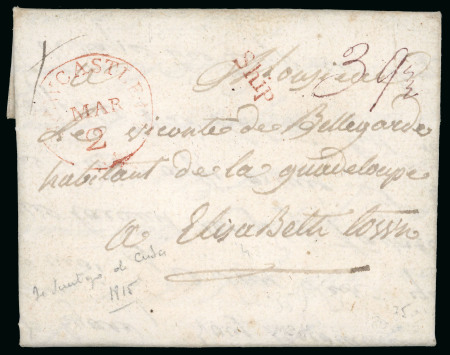 NEWCASTLE
MAR
2
Ship
39½
a Monsieur
Le vicomte de Bellegarde
habitant de la guadeloupe
a Elisa Beth town
de Santiago de Cuba
1815
25